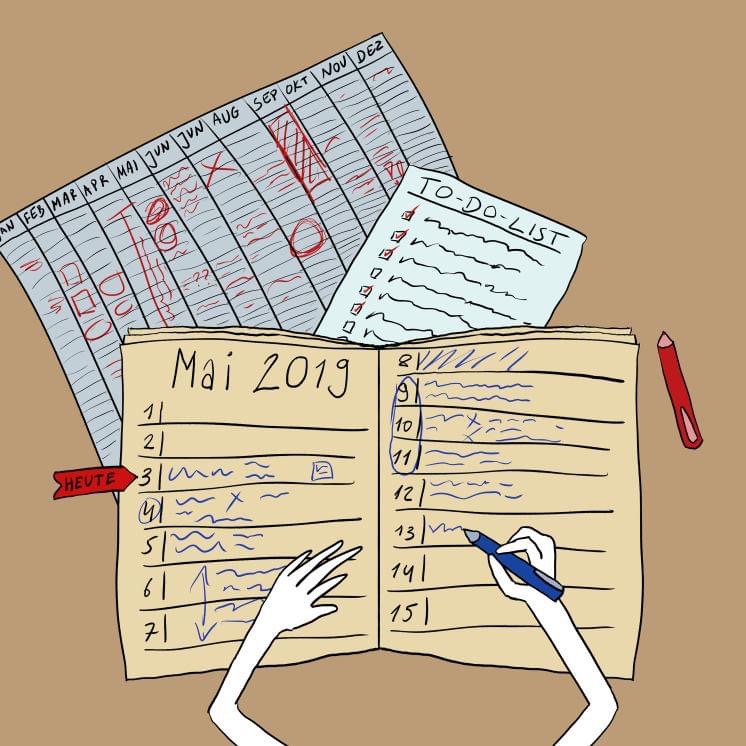 JAN FEB MAR APR MAI JUN JUN AUG SEP OKT NOV DEZ
??
TO-DO-LIST
Mai 2019
1
2
HEUTE
3
4
5
6
7
8
9
10
11
12
13
14
15